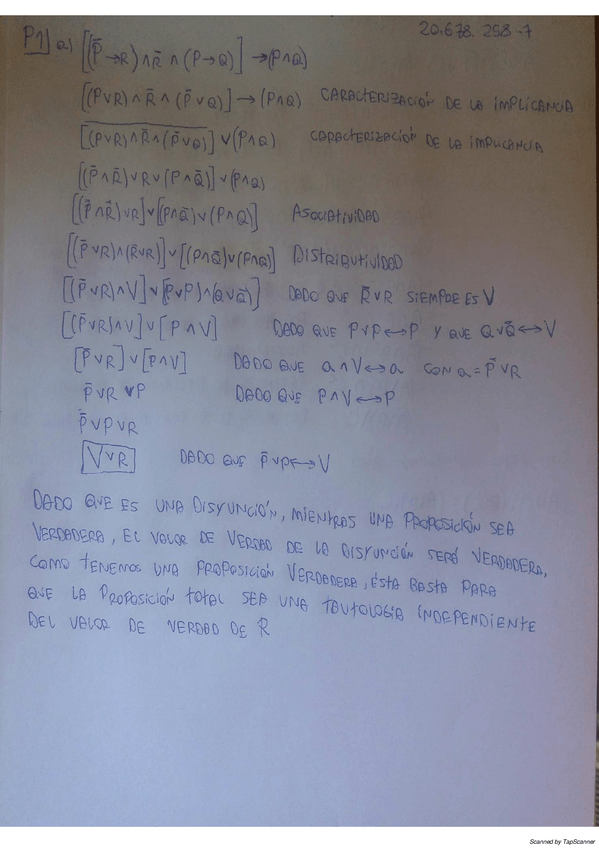 20.678.258-7
P1] a) [(P̄→R)∧R̄∧(P→Q)]→(P∧Q)
[(P∨R)∧R̄∧(P̄∨Q)]→(P∧Q) CARACTERIZACIÓN DE LA IMPLICANCIA
[(P∨R)∧R̄∧(P̄∨Q)]‾∨(P∧Q) CARACTERIZACIÓN DE LA IMPLICANCIA
[(P̄∧R̄)∨R∨(P∧Q̄)]∨(P∧Q)
[(P̄∧R̄)∨R]∨[(P∧Q̄)∨(P∧Q)] ASOCIATIVIDAD
[(P̄∨R)∧(R̄∨R)]∨[(P∧Q̄)∨(P∧Q)] DISTRIBUTIVIDAD
[(P̄∨R)∧V]∨[(P∨P)∧(Q∨Q̄)] DADO QUE R̄∨R SIEMPRE ES V
[(P̄∨R)∧V]∨[P∧V] DADO QUE P∨P↔P Y QUE Q∨Q̄↔V
[P̄∨R]∨[P∧V] DADO QUE a∧V↔a CON a=P̄∨R
P̄∨R∨P DADO QUE P∧V↔P
P̄∨P∨R
V∨R DADO QUE P̄∨P↔V
DADO QUE ES UNA DISYUNCIÓN, MIENTRAS UNA PROPOSICIÓN SEA
VERDADERA, EL VALOR DE VERDAD DE LA DISYUNCIÓN SERÁ VERDADERA,
COMO TENEMOS UNA PROPOSICIÓN VERDADERA, ÉSTA BASTA PARA
QUE LA PROPOSICIÓN TOTAL SEA UNA TAUTOLOGÍA INDEPENDIENTE
DEL VALOR DE VERDAD DE R
Scanned by TapScanner